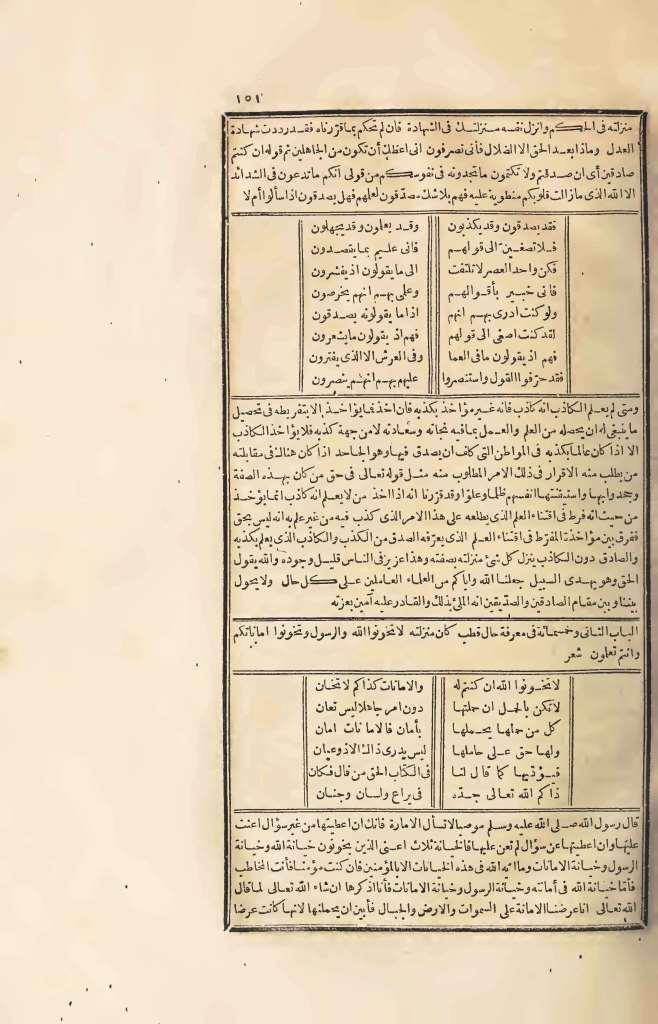 ١٥١
منزلته فى الحكم وانزل نفسه منزلتك فى الشهادة فان لم تحكم بما قررناه فقد رددت شهادة
العدل وماذا بعد الحق الا الضلال فأنى تصرفون انى اعظك أن تكون من الجاهلين ثم قوله ان كنتم
صادقين أى ان صدقتم ولا تكتمون ما تجدونه فى نفوسكم من قولى انكم ما تدعون فى الشدائد
الا الله الذى ما زالت قلوبكم منطوية عليه فهم بلاشك مصدقون لعلهم فهل يصدقون اذا سألوا أم لا
فقد يصدقون وقد يكذبون وقد يعلمون وقد يجهلون
فلا تصغين الى قولهم فانى عليم بما يقصدون
فكن واحد العصر لا تلتفت الى ما يقولون اذ يفشرون
فانى خبير بأقوالهم وعلى بهم انهم يخرصون
ولو كنت ادرى بهم انهم اذا ما يقولونه يصدقون
لقد كنت اصغى الى قولهم فهم اذ يقولون ما يشعرون
فهم اذ يقولون ما فى العما وفى العرش الا الذى يفترون
فقد حرّفوا القول واستنصروا عليهم بهم انهم ينصرون
ومتى لم يعلم الكاذب انه كاذب فانه غير مؤاخذ بكذبه فان اخذ فما يؤاخذ الا بتفريطه فى تحصيل
ما ينبغى له ان يحصله من العلم والعمل بما فيه نجاته وسعادته لا من جهة كذبه فلا يؤاخذ الكاذب
الا اذا كان عالما بكذبه فى المواطن التى كلف ان يصدق فيها وهو الجاحد اذا كان هنالك فى مقابلته
من يطلب منه الاقرار فى ذلك الامر المطلوب منه مثل قوله تعالى فى حق من كان بهذه الصفة
وجحدوا بها واستيقنتها انفسهم ظلما وعلوّا وقد قررنا انه اذا اخذ من لا يعلم انه كاذب انما يؤخذ
من حيث انه فرط فى اقتناء العلم الذى يطلعه على هذا الامر الذى كذب فيه من غير علم به انه ليس بحق
ففرق بين مؤاخذة المفرّط فى اقتناء العلم الذى يعرّفه الصدق من الكذب والكاذب الذى يعلم بكذبه
والصادق دون الكاذب ينزل كل شئ منزلته بصفته وهذا عزيز فى الناس قليل وجوده والله يقول
الحق وهو يهدى السبيل جعلنا الله واياكم من العلماء العاملين على كل حال ولا يحول
بيننا وبين مقام الصادقين والصدّيقين انه الملئ بذلك والقادر عليه آمين بعزته
الباب الثانى وخمسمائة فى معرفة حال قطب كان منزلته لا تخونوا الله والرسول وتخونوا اماناتكم
وانتم تعلمون شعر
لا تخونوا الله ان كنتم له والامانات كذاكم لا تخان
لا تكن بالحمل ان حملتها دون امر جاهلا ليس تعان
كل من حملها يحملها بأمان فالامانات امان
ولها حق على حاملها ليس يدرى ذاك الا ذو عيان
فيؤدّيها كما قال لنا فى الكتاب الحق من قال فكان
ذاكم الله تعالى جدّه فى يراع ولسان وجنان
قال رسول الله صلى الله عليه وسلم موصيا لا تسأل الامارة فانك ان اعطيتها من غير سؤال اعنت
عليها وان اعطيتها عن سؤال لم تعن عليها فالخيانة ثلاث اعنى الذين يخونون خيانة الله وخيانة
الرسول وخيانة الامانات وما ايه الله فى هذه الخيانات الا بالمؤمنين فان كنت مؤمنا فأنت المخاطب
فأما خيانة الله فى أمانته وخيانة الرسول وخيانة الامانات فأنا اذكرها ان شاء الله تعالى لما قال
الله تعالى انا عرضنا الامانة على السموات والارض والجبال فأبين ان يحملنها لانها كانت عرضا